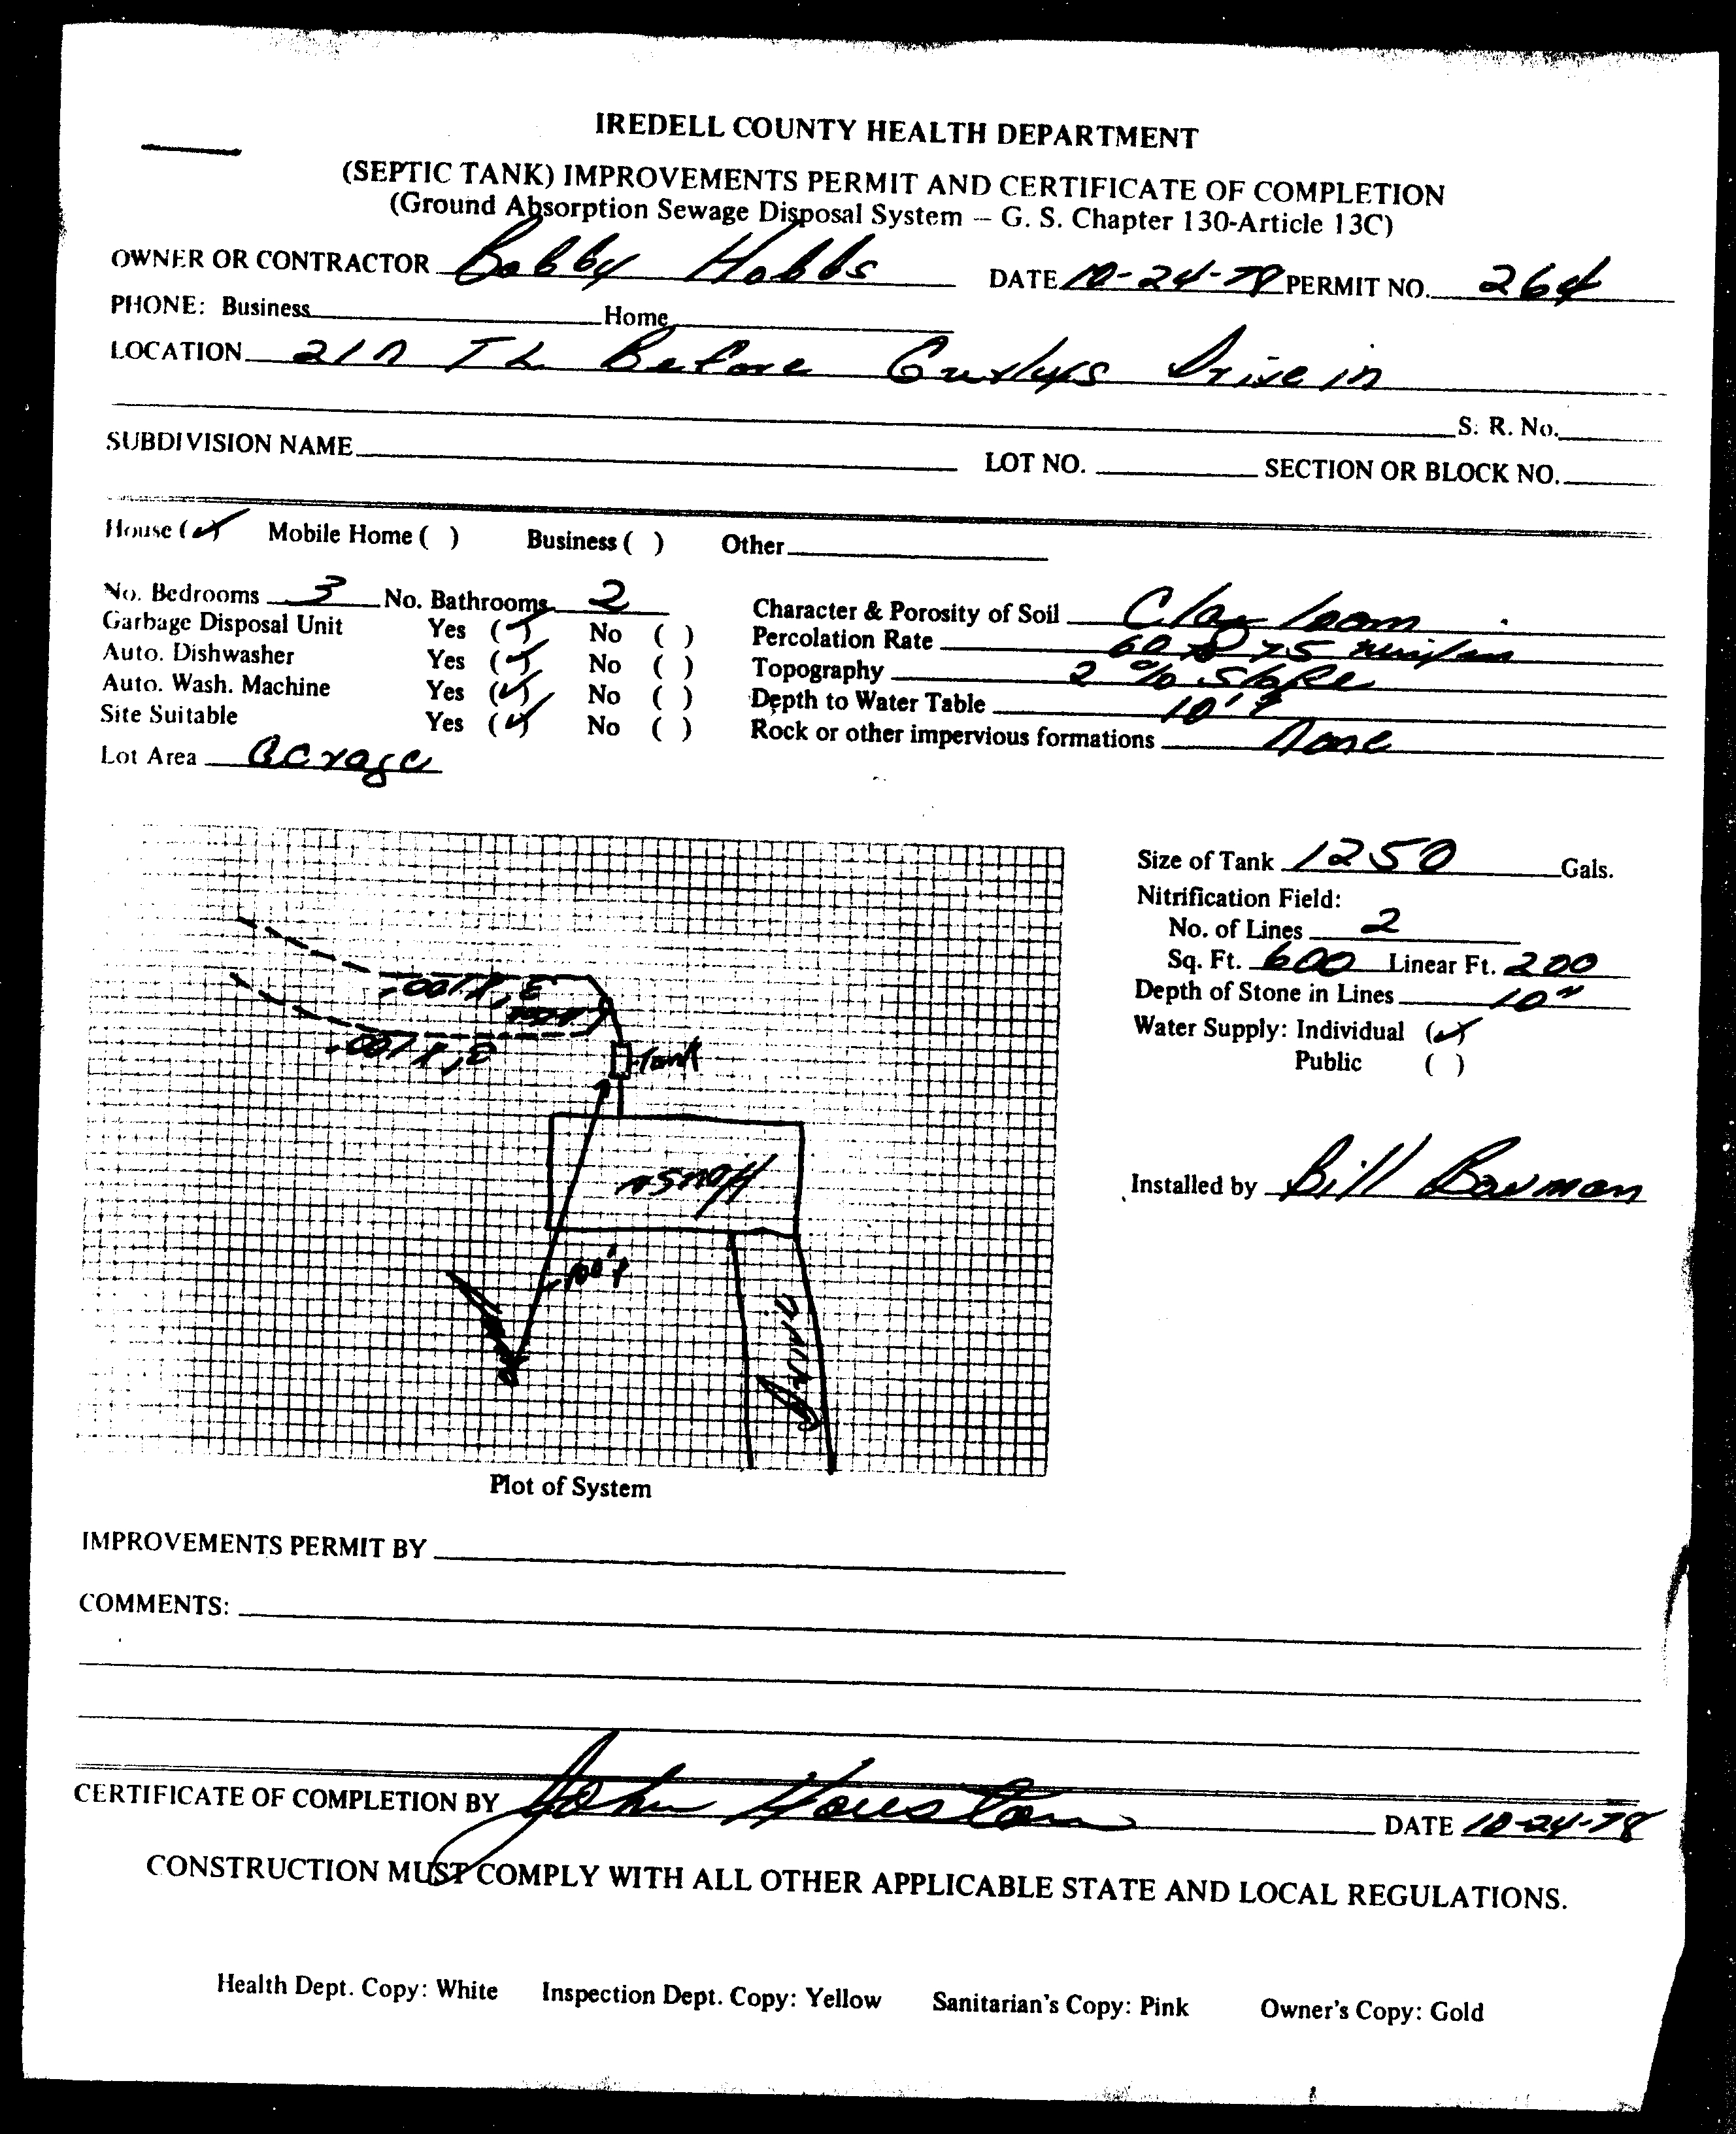 IREDELL COUNTY HEALTH DEPARTMENT
(SEPTIC TANK) IMPROVEMENTS PERMIT AND CERTIFICATE OF COMPLETION
(Ground Absorption Sewage Disposal System — G. S. Chapter 130-Article 13C)
OWNER OR CONTRACTOR Bobby Hobbs DATE 10-24-78 PERMIT NO. 264
PHONE: Business Home
LOCATION 21 TL Before Drive in
S. R. No.
SUBDIVISION NAME LOT NO. SECTION OR BLOCK NO.
House (✓) Mobile Home ( ) Business ( ) Other
No. Bedrooms 3 No. Bathrooms 2 Character & Porosity of Soil Clay loam
Garbage Disposal Unit Yes (✓) No ( ) Percolation Rate 60 to 75 min/
Auto. Dishwasher Yes (✓) No ( ) Topography 2 % Slope
Auto. Wash. Machine Yes (✓) No ( ) Depth to Water Table 10'+
Site Suitable Yes (✓) No ( ) Rock or other impervious formations None
Lot Area Acrage
Size of Tank 1250 Gals.
Nitrification Field:
No. of Lines 2
Sq. Ft. 600 Linear Ft. 200
Depth of Stone in Lines 10"
Water Supply: Individual (✓)
Public ( )
Installed by Bill Bowman
3' X 100'
3' X 100'
Tank
House
100'+
Drive
Plot of System
IMPROVEMENTS PERMIT BY
COMMENTS:
CERTIFICATE OF COMPLETION BY John Houston DATE 10-24-78
CONSTRUCTION MUST COMPLY WITH ALL OTHER APPLICABLE STATE AND LOCAL REGULATIONS.
Health Dept. Copy: White Inspection Dept. Copy: Yellow Sanitarian's Copy: Pink Owner's Copy: Gold